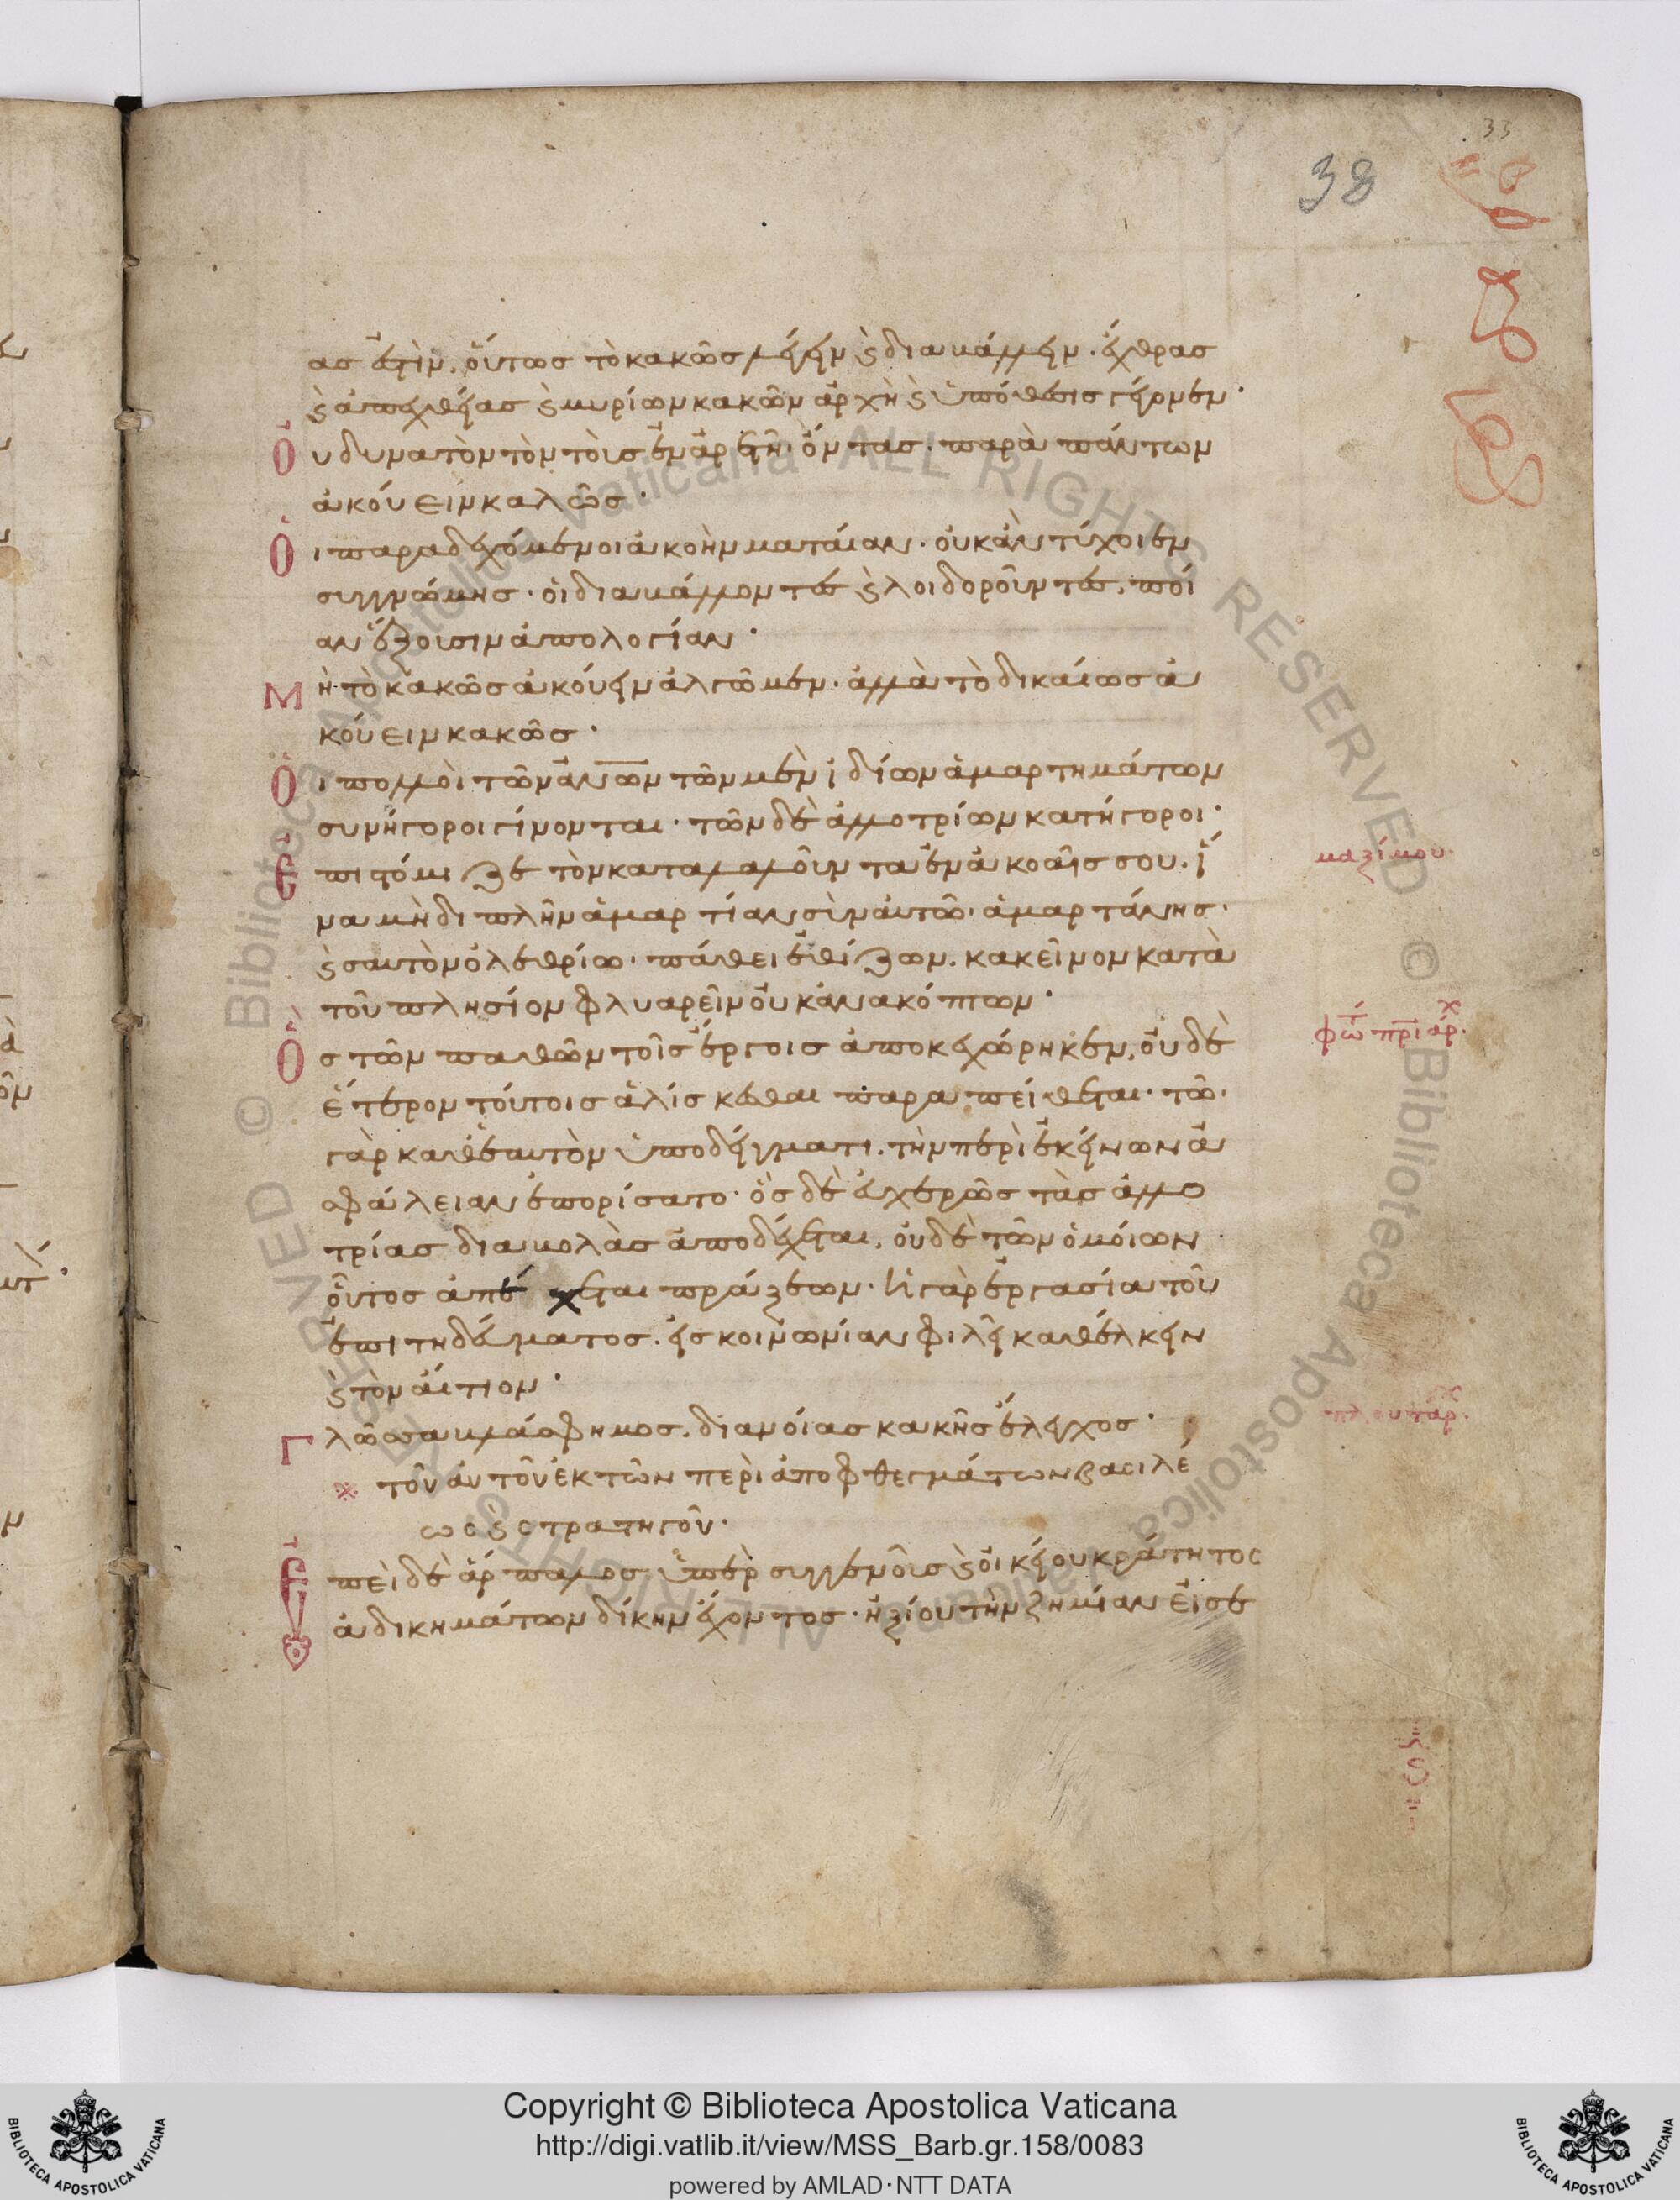 33
38
ας ἐστὶν. οὕτως τὸ κακῶς λέγειν ϗ διαβάλλειν. ἔχθρας
ϗ ἀπεχθείας ϗ μυρίων κακῶν ἀρχὴ ϗ ὑπόθεσις γέγονεν·
Ὀυ δυνατὸν τὸν τοῖς ἐν ἀρετῆ ὄντας. παρὰ πάντων
ἀκούειν καλῶς·
Ὁι παραδεχόμενοι ἀκοὴν ματαίαν. οὐκ ἂν τύχοιεν
συγγνώμης. οἱ διαβάλλοντες ϗ λοιδοροῦντες, ποί
αν ἕξουσιν ἀπολογίαν·
Μὴ τὸ κακῶς ἀκούειν ἀλγῶμεν. ἀλλὰ τὸ δικαίως ἀ
κούειν κακῶς·
Ὁι πολλοὶ τῶν ἀνων τῶν μὲν ἰδίων ἁμαρτημάτων
συνήγοροι γίνονται. τῶν δὲ ἀλλοτρίων κατήγοροι·
Ἐπιστόμιζε τὸν καταλαλοῦντα ἐν ἀκοαῖς σου. ἵ
να μὴ διπλῆν ἁμαρτίαν σὺν αὐτῶ. ἁμαρτάνης.
ϗ σαυτὸν ὀλεθρίω. πάθει ἐθίζων. κακεῖνον κατὰ
τοῦ πλησίον φλυαρεῖν οὐκ ἀνακόπτων·
Ὃς τῶν παθῶν τοῖς ἔργοις ἀποκεχώρηκεν, οὐδὲ
ἕτερον τούτοις ἁλίσκεσθαι παραπείθεται. τῶ.
γὰρ καθεαυτὸν ὑποδείγματι. τὴν περὶ ἐκείνων ἀ
σφάλειαν ἐπορίσατο. ὃς δὲ εὐχερῶς τὰς ἀλλο
τρίας διαβολὰς ἀποδέχεται, οὐδὲ τῶν ὁμοίων
οὗτος ἀπέχεται πράξεων. ἡ γὰρ ἐργασία τοῦ
ἐπιτηδεύματος. εἰς κοινωνίαν φιλεῖ καθέλκειν
ϗ τὸν αἴτιον·
Γλῶσσα βλάσφημος. διανοίας κακῆς ἔλεγχος·
τοῦ αὐτοῦ ἐκ τῶν περὶ ἀποφθεγμάτων βασιλέ
ως ϗ στρατηγοῦ.
Ἐπεὶ δὲ ἅρπαλος ὑπὲρ συγγενοῦς ϗ οἰκείου κράτητος
ἀδικημάτων δίκην ἔχοντος. ἠξίου τὴν ζημίαν εἰσε
μαξίμου.
φωτ πρι αρχ.
πλουταρχ.
Copyright © Biblioteca Apostolica Vaticana
http://digi.vatlib.it/view/MSS_Barb.gr.158/0083
powered by AMLAD·NTT DATA